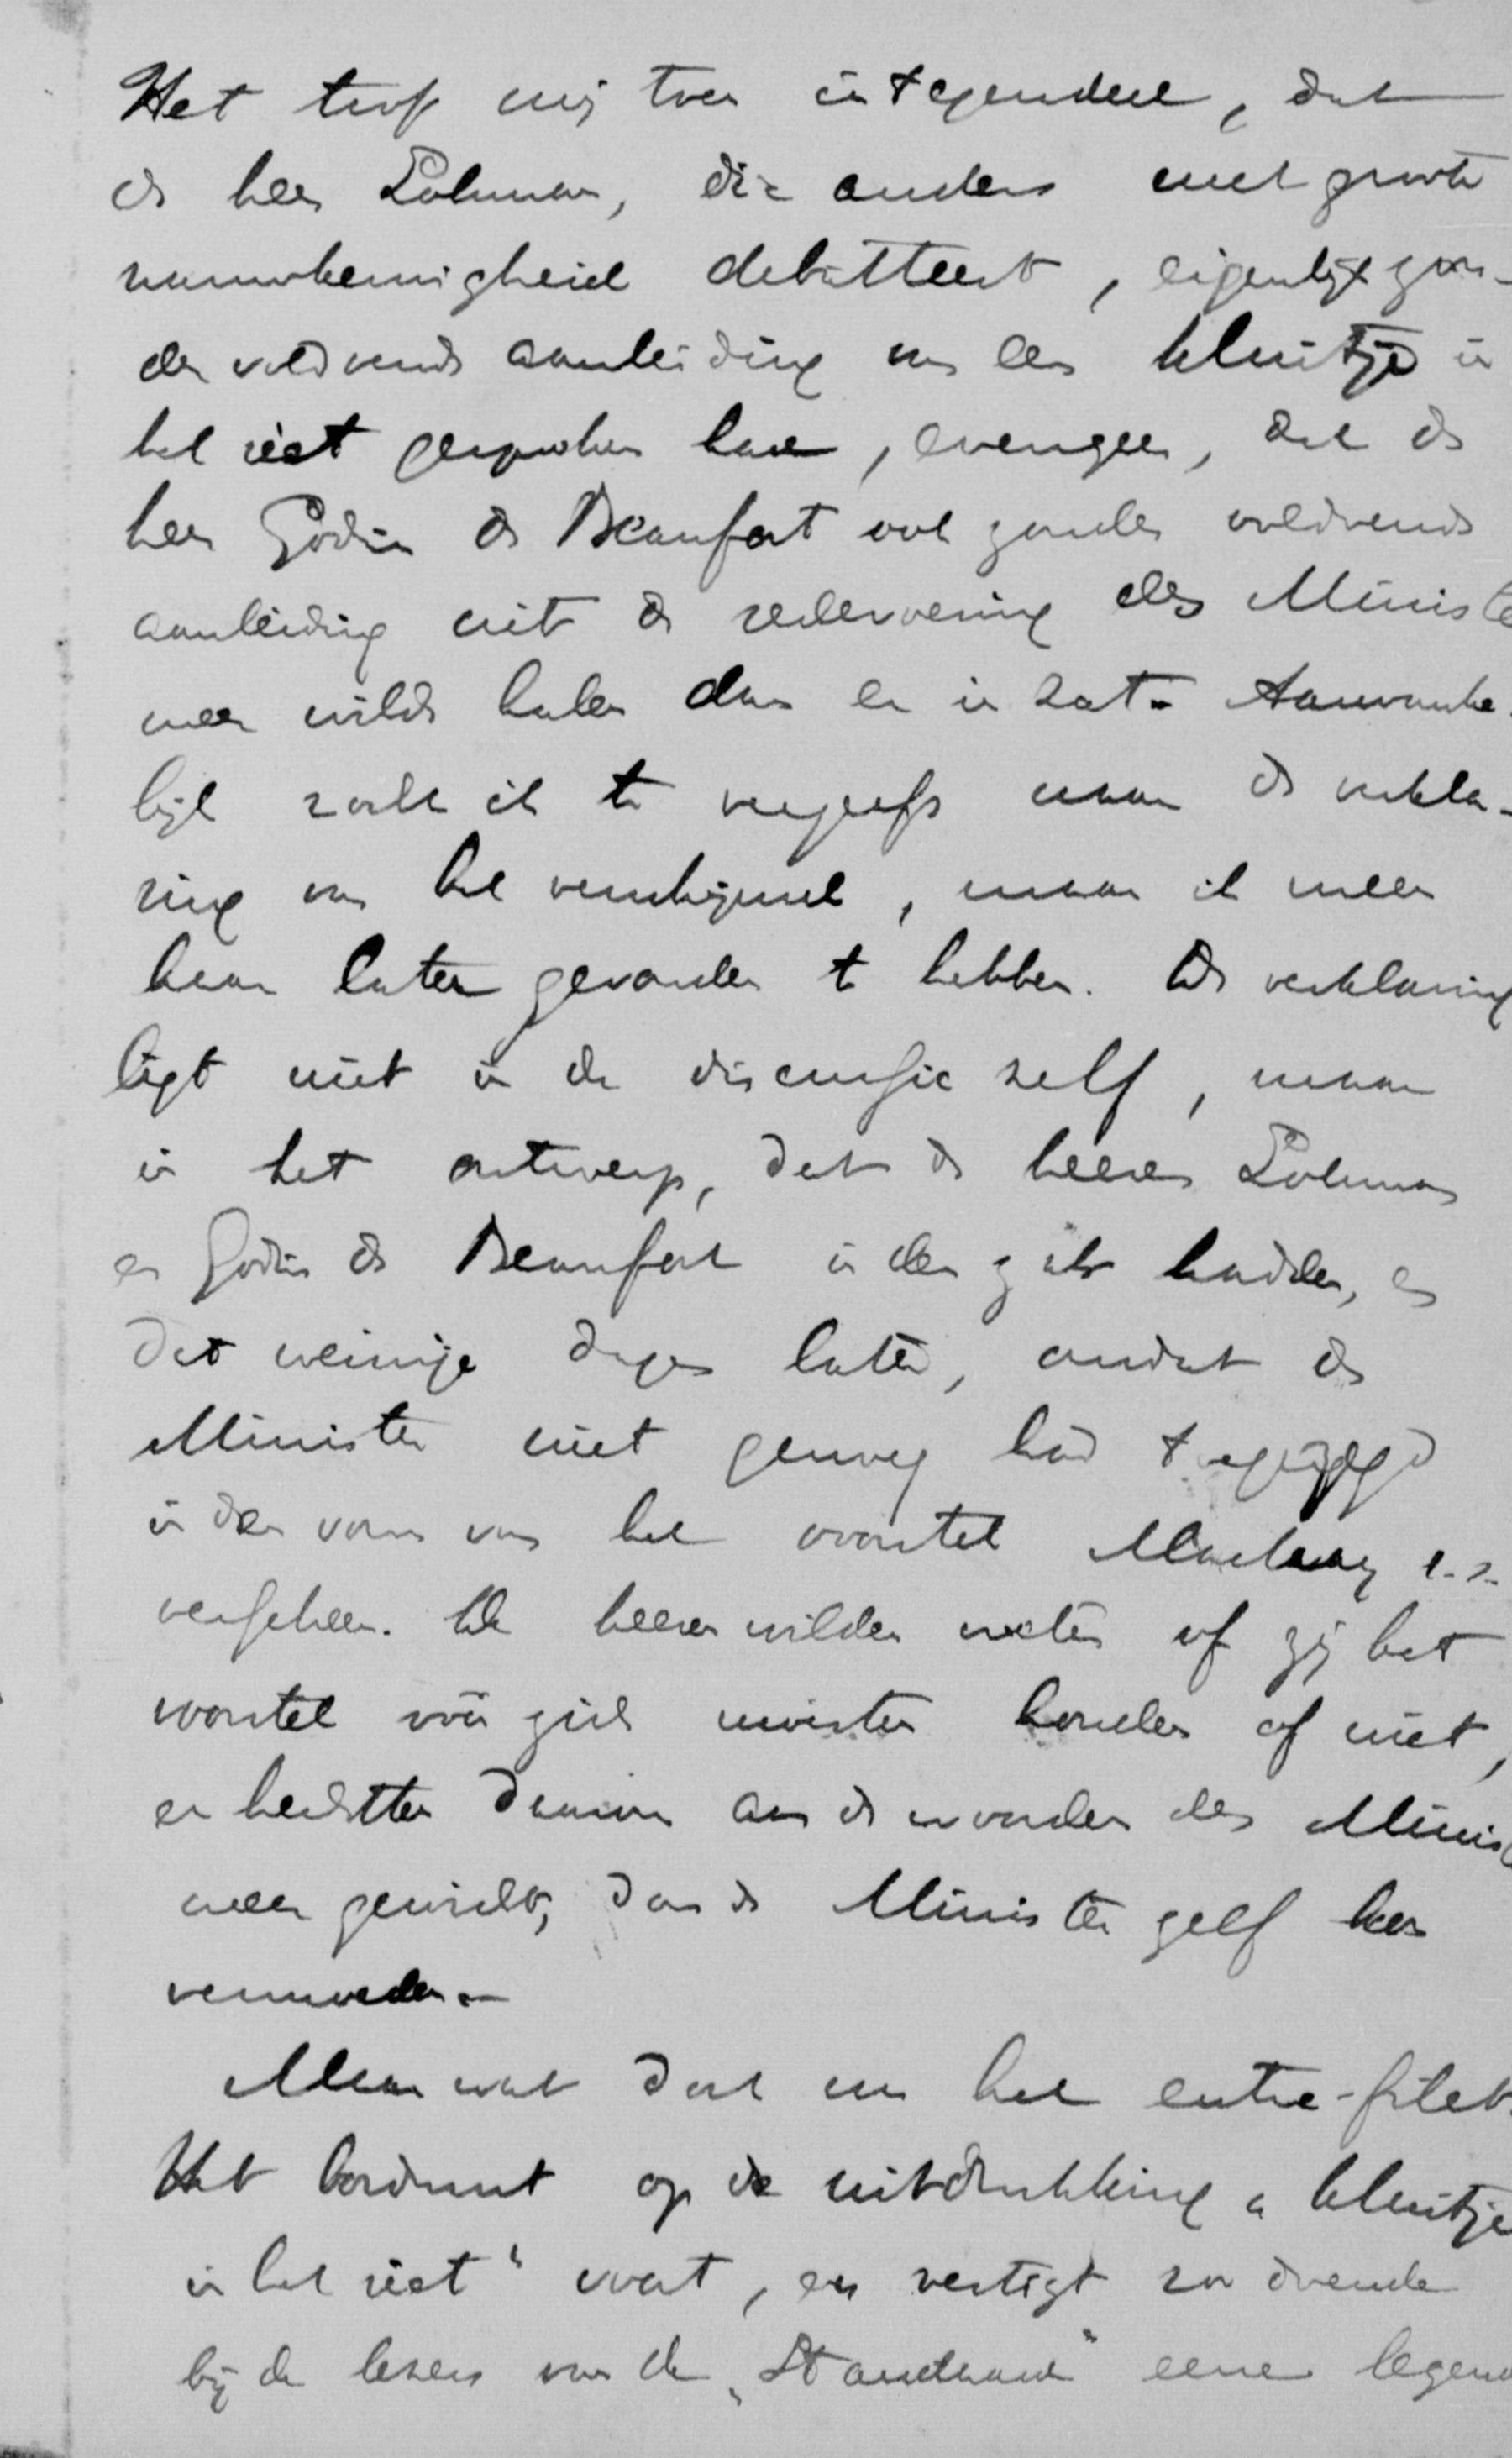 Het trof mij toen integendeel, dat
de heer Lohman, die anders met groote
nauwkeurigheid debatteert, eigenlijk zon-
der voldoende aanleiding van een kluitje in
het riet gesproken had, evenzeer, dat de
heer Godin de Beaufort ook zonder voldoende
aanleiding uit de redevoering des Ministe
meer wilde halen dan er in zat. Aanvanke-
lijk zocht ik te vergeefs naar de verkla-
ring van het verschijnsel, maar ik meen
haar later gevonden te hebben. De verklaring
ligt niet in de discussie zelf, maar
in het ontwerp, dat de heeren Lohman
en Godin de Beaufort in den zak hadden, en
dat weinige dagen later, omdat de
Minister niet genoeg had toegezegd
in den vorm van het voorstel Mackay c.s.
verscheen. De heeren wilden weten of zij het
voorstel vóór zich moesten houden of niet,
en hechtten daarom aan de woorden des Minis
meer gewicht, dan de Minister zelf kon
vermoeden.
Maar wat doet nu het entre-filet.
Het borduurt op de uitdrukking „kluitje
in het riet" voort, en vestigt zoo doende
bij de lezers van de „Standaard" eene legen